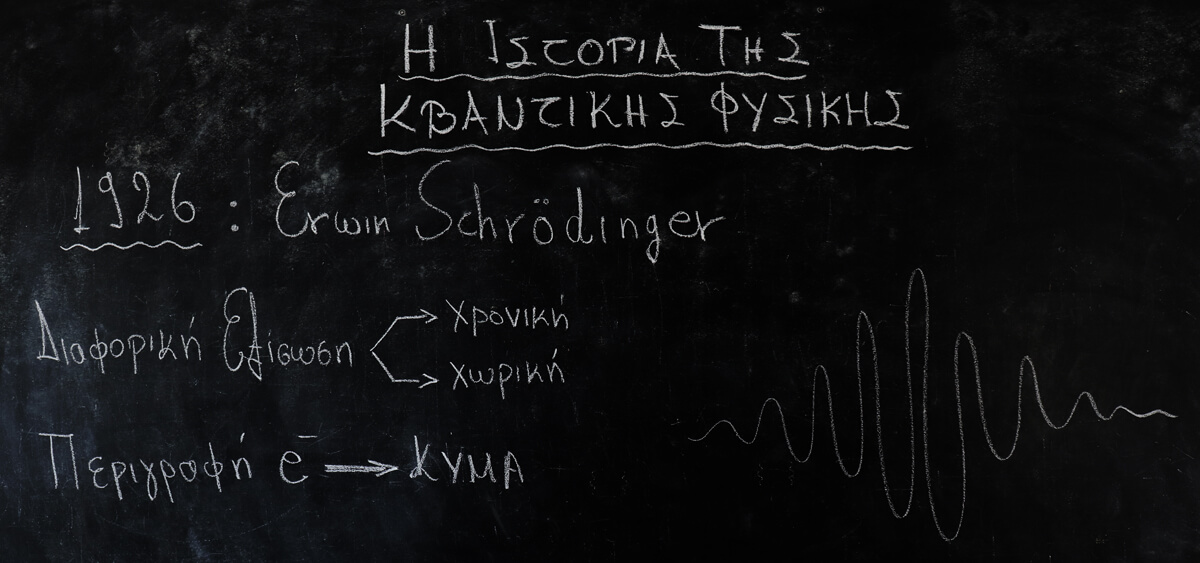 Η ΙΣΤΟΡΙΑ ΤΗΣ
ΚΒΑΝΤΙΚΗΣ ΦΥΣΙΚΗΣ
1926 : Erwin Schrödinger
Διαφορική Εξίσωση
→ Χρονική
→ Χωρική
Περιγραφή e⁻ → ΚΥΜΑ